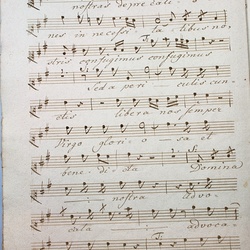 nostras depreca ti o
nes in ne cessi ta tibus no
stris confugimus confugimus
Sed a peri culis cun
ctis libera nos semper
Virgo glori o sa et
bene di cta Domina
nostra advo
cata advoca